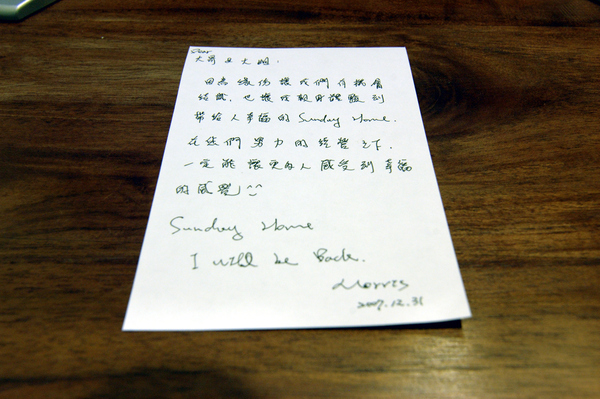 Dear
大哥及大姐：
因為緣份讓我們有機會
結識，也讓我親身體驗到
帶給人幸福的 Sunday Home.
在你們努力的經營之下，
一定能讓更多人感受到幸福
的感覺」^^
Sunday Home
I will be Back.
Morris
2007.12.31